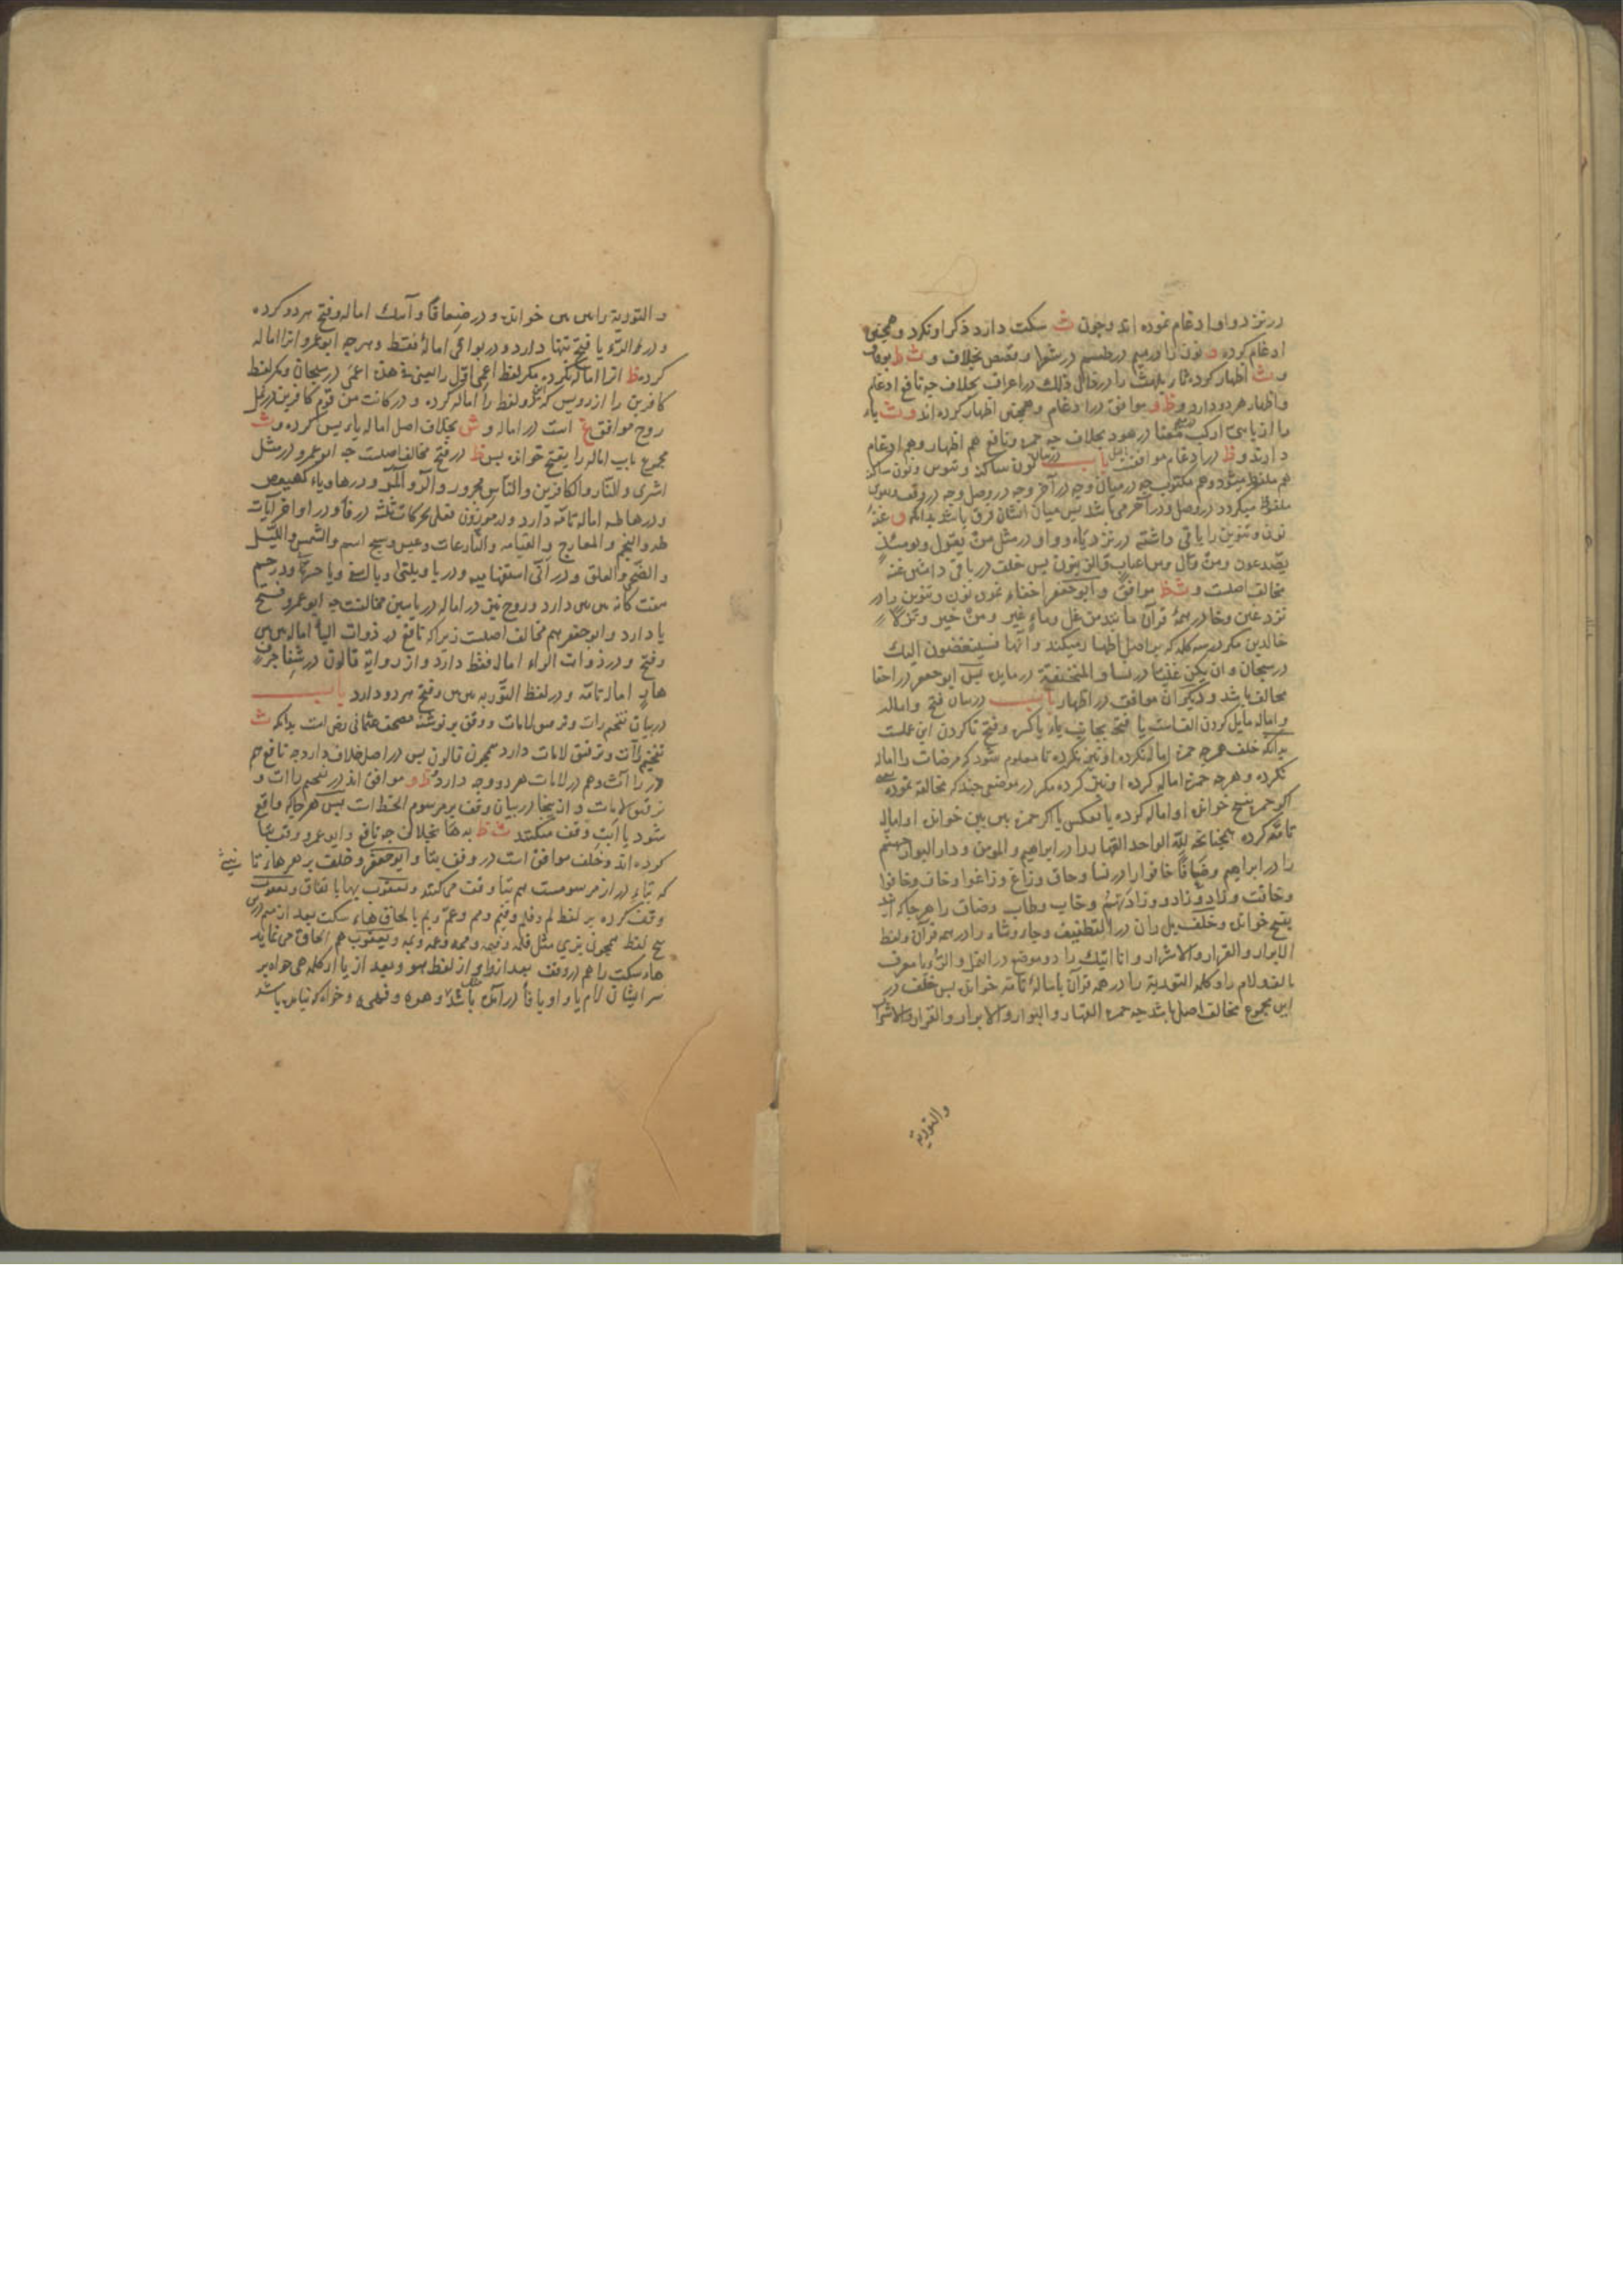 در نزد واو ادغام نموده اند و چون ث سکت دارد ذکر او نکرد و همچنین
ادغام کرده و نون را در میم در طسم در شعرا و قصص بخلاف و ث ظ
و ث اظهار کرده ثا یلهث را در ذال ذلک در اعراف بخلاف چه نافع ادغام
و اظهار هر دو دارد و ظ و موافق در ادغام و همچنین اظهار کرده اند و ث یاء
را از یا بنی ارکب معنا در هود بخلاف چه حمزه و نافع هم اظهار و هم ادغام
دارند و ظ در ادغام موافقست باب در بیان نون ساکنه و تنوین و نون ساکنه
هم ملفوظ میشود و هم مکتوب چه در میان و چه در آخر و چه در وصل و چه در وقف و تنوین
ملفوظ میگردد در وصل و در آخر می باشد پس میان ایشان فرق باشد بدانکه غنه
نون و تنوین را باقی داشته در نزد یاء و واو در مثل من یقول و یومئذ
یصدعون و من وال پس خلف در باقی داشتن غنه
مخالف اصلست و ث ظ موافق و ابوجعفر اخفاء نمود نون و تنوین را در
نزد غین و خا در همه قرآن مانند من غل و ماء غیر و من خیر
خالدین مگر در سه کلمه که اظهار میکند و آنها فسینغضون الیک
در سبحان و ان یکن غنیا در نسا و المنخنقة در مایده پس ابوجعفر در اخفا
مخالف باشد و دیگران موافق در اظهار باب در بیان فتح و اماله
و اماله مایل کردن الفاست یا فتحه بجانب یاء یا کسره و فتح ناکردن این عملست
بدانکه خلف هر چه حمزه اماله نکرده او نیز نکرده تا معلوم شود که مرضات را اماله
نکرده و هر چه حمزه اماله کرده او نیز کرده مگر در موضعی چند که مخالفة نموده
اگر حمزه بفتح خوانده او اماله کرده یا بعکس یا اگر حمزه بین بین خوانده او اماله
تامه کرده همچنانچه لله الواحد القهار را در ابراهیم و المومن و دار البوار جهنم
را در ابراهیم و ضعافا خافوا را در نسا و حاق و زاغ و زاغوا و خاف و خافوا
و خافت و زاد و زادوا و زادتهم و خاب و طاب و ضاق را هر جا که آید
بفتح خوانده و خلف بل ران در التطفیف و جاء و شاء را در همه قرآن و لفظ
الابرار و القرار و الاشرار و انا آتیک را دو موضع در النمل و الرؤیا معرف
بالف و لام را و کلمه التوریة را در همه قرآن باماله تامه خوانده پس خلف در
این مجموع مخالف اصل باشد چه حمزه القهار و البوار و الابرار و القرار و الاشرار
والتوریة
و التوریة را بین بین خوانده و در ضعافا و آتیک اماله و فتح هر دو کرده
و در الرؤیا فتح تنها دارد و در بواقی اماله فقط و هر چه ابوعمرو انرا اماله
کرده ظ انرا اماله نکرده مگر لفظ اعمی اول را یعنی فی هذه اعمی در سبحان و مگر لفظ
کافرین را از رویس که لفظ را اماله کرده و در کانت من قوم کافرین در نمل
روح موافق است در اماله و بخلاف اصل اماله یاء یس کرده و ث
مجموع باب اماله را بفتح خوانده پس ظ در فتح مخالف اصلست چه ابوعمرو در مثل
اشری و النار و الکافرین و الناس مجرور و الر و المر و در ها و یاء کهیعص
و در ها طه اماله تامه دارد و در موزون فعلی بحرکات ثلثه در فا و در اواخر آیات
طه و النجم و المعارج و القیامه و النازعات و عبس و سبح اسم و الشمس و اللیل
و الضحی و العلق و در انی استفهامیه و در یا ویلتی و یا اسفی و یا حسرتا و در حم
هفت گانه بین بین دارد و روح نیز در اماله در یاسین مخالفست چه ابوعمرو فتح
یا دارد و ابوجعفر هم مخالف اصلست زیرا که نافع در ذوات الیا اماله بین بین
و فتح و در ذوات الراء اماله فقط دارد و از روایة قالون در شفا جرف
هار اماله تامه و در لفظ التوریه بین بین و فتح هر دو دارد باب
در بیان تفخیم راءات و ترقیق لامات و وقف بر نوشته مصحف عثمانی رض است بدانکه ث
تفخیم راآت و ترقیق لامات دارد همچون قالون پس در اصل خلاف دارد چه نافع هم
در راآت و هم در لامات هر دو وجه دارد ظ و موافق اند در تفخیم راات و
ترقیق لامات و از اینجا در بیان وقف بر مرسوم الخط است پس هر جا که واقع
شود یا ابت وقف میکنند ث ظ به ها بخلاف چه نافع و ابوعمرو وقف بتا
کرده اند و خلف موافق است در وقف بتا و ابوجعفر و خلف بر هر هاء تانیث
که بتاء دراز مرسومست هم بتا وقف می کنند و یعقوب بها باتفاق و یعقوب
وقف کرده بر لفظ لم و فلم و فیم و مم و عم و بم بالحاق هاء سکت بعد از میم در این
پنج لفظ همچون بزی مثل فلمه و فیمه و ممه و عمه و بمه و یعقوب هم الحاق می نماید
هاء سکت را هم در وقف بعد از واو از لفظ هو و بعد از یا از کلمه هی خواه بر
سر ایشان لام یا واو یا فا در آمده باشد مثل و هوه و فهیه و خواه که نیامده باشد